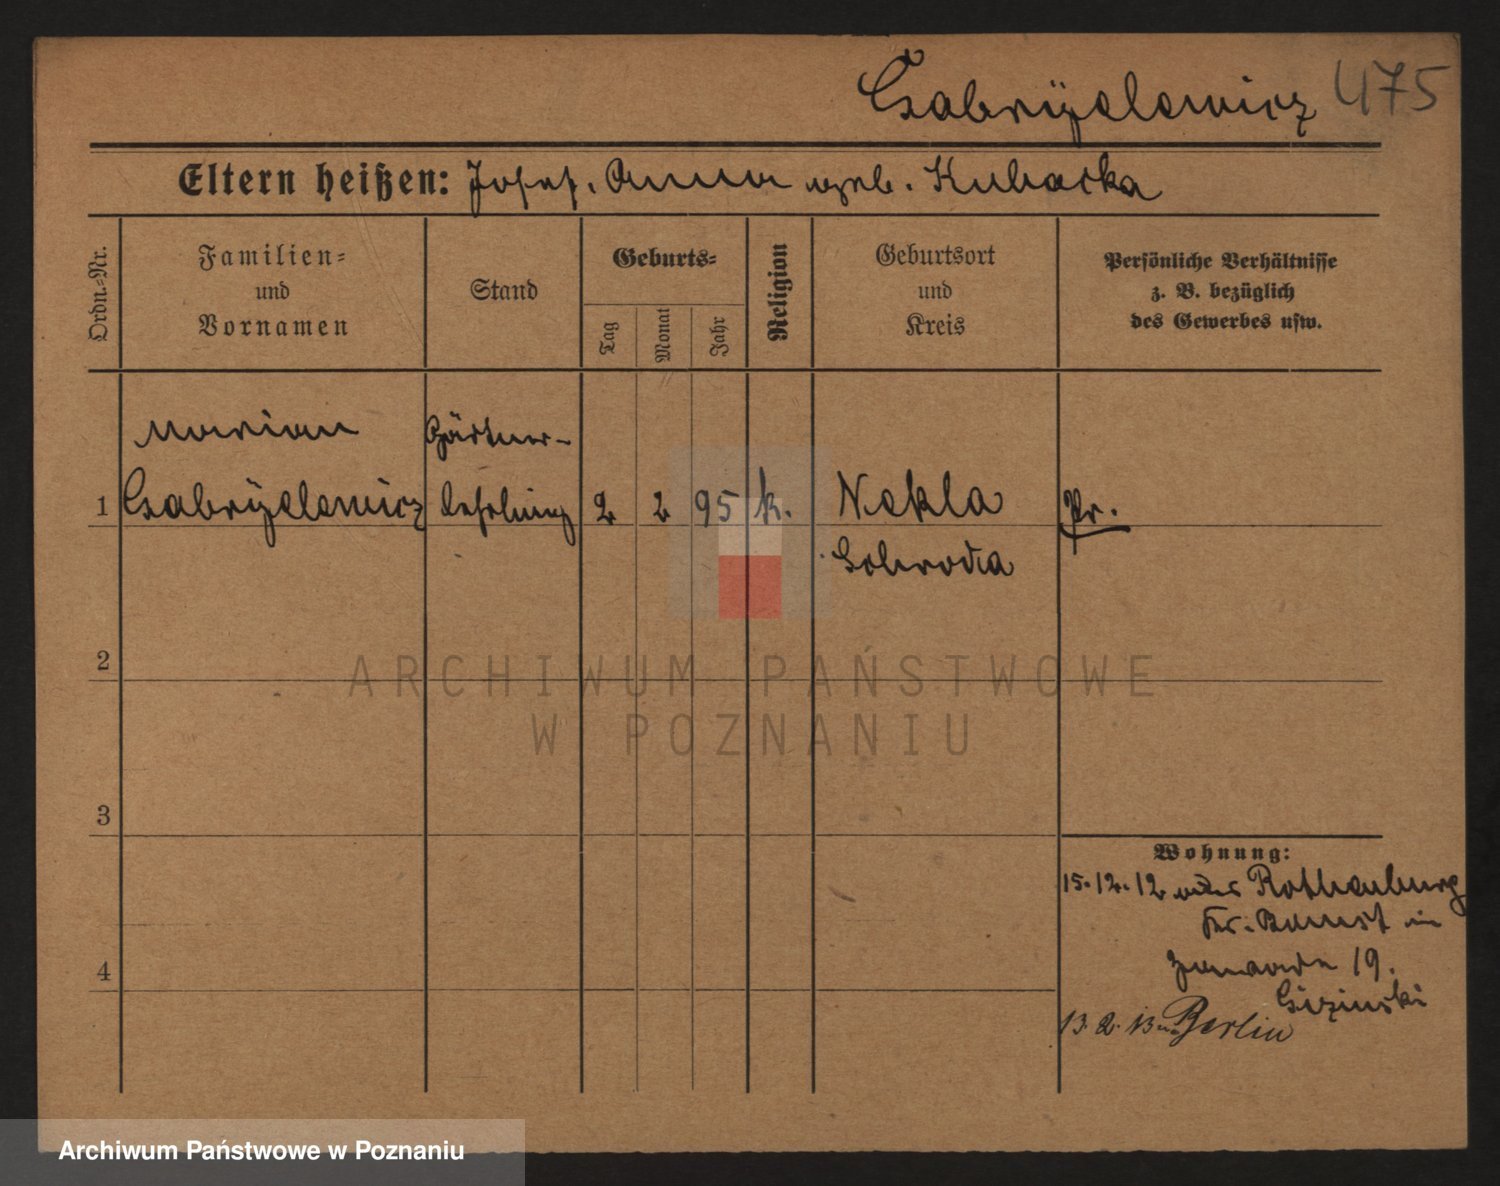 Gabryelewicz 475
Eltern heißen: Josef. Anna geb. Kubacka
Ordn.-Nr.
Familien-
und
Vornamen
Stand
Geburts-
Tag
Monat
Jahr
Religion
Geburtsort
und
Kreis
Persönliche Verhältnisse
z. B. bezüglich
des Gewerbes usw.
Marian Gärtner-
1 Gabryelewicz lehrling 2 2 95 k. Nekla Pr.
Schroda
2
3
4
Wohnung:
15.12.12 aus Rothenburg
Kr. Bomst in
19.
13.2.13 n. Berlin
ARCHIWUM PAŃSTWOWE
W POZNANIU
Archiwum Państwowe w Poznaniu